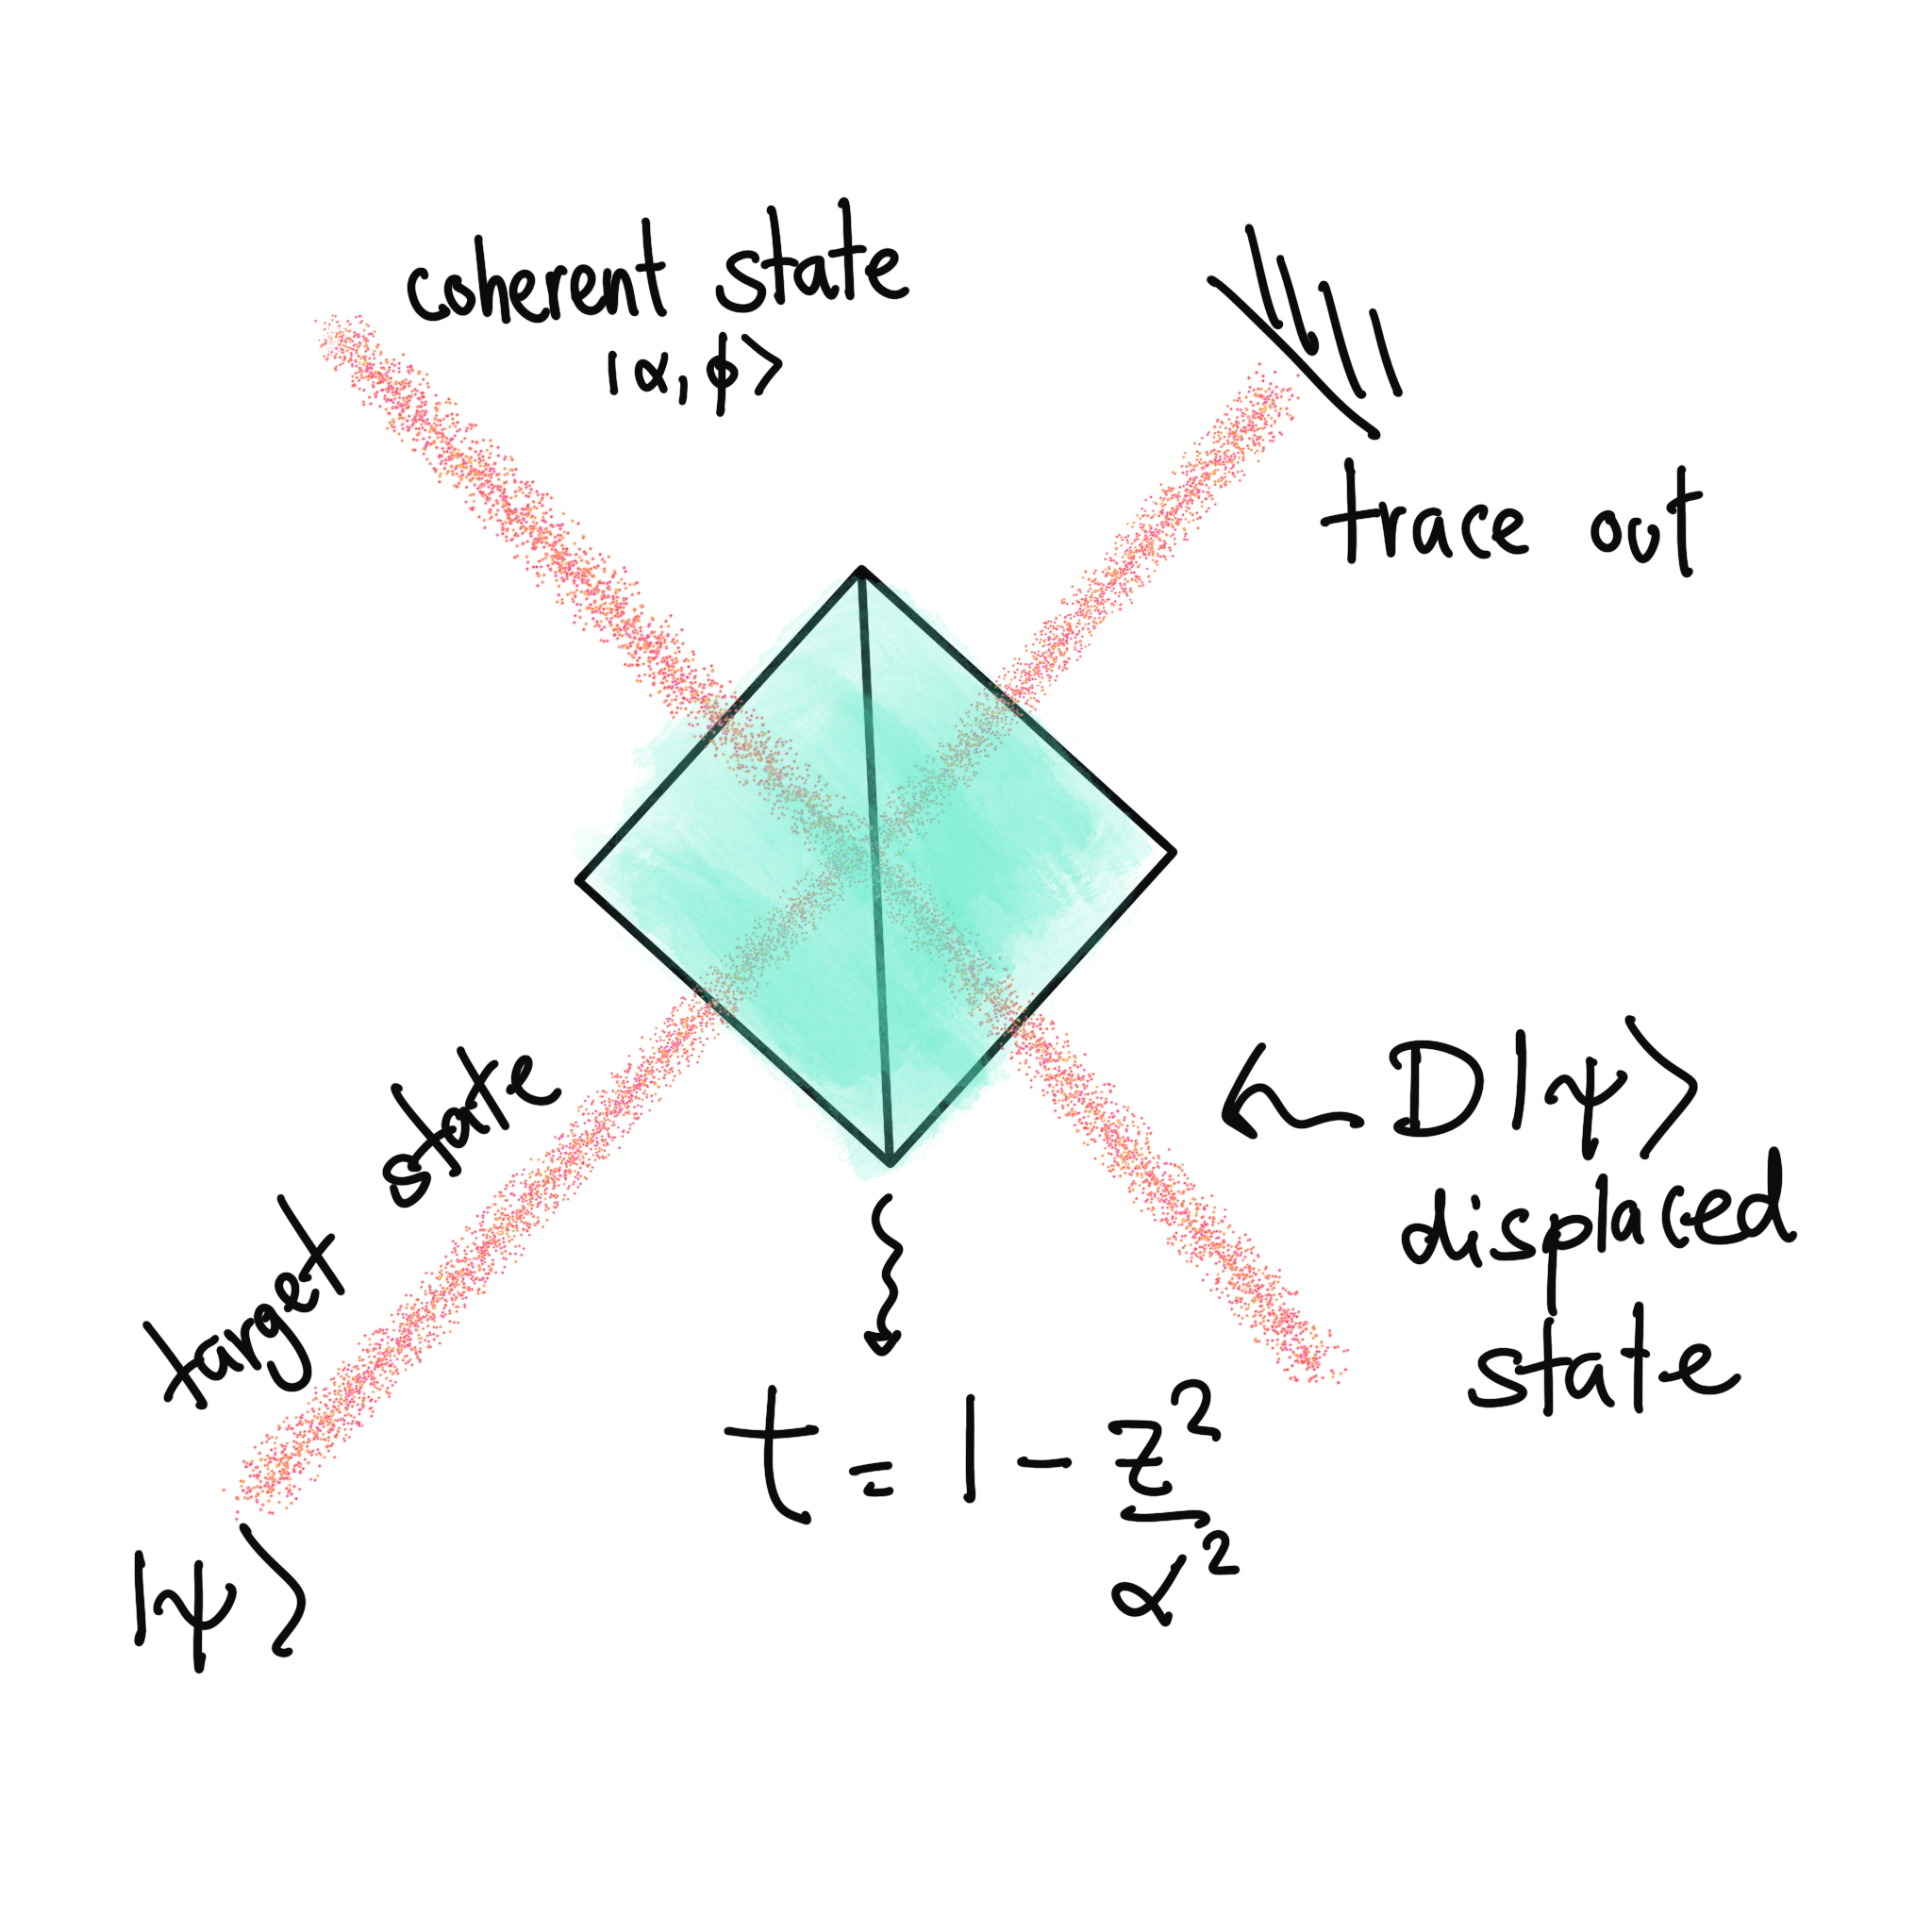 coherent state
|α, ϕ⟩
trace out
target state
|ψ⟩
D|ψ⟩
displaced
state
t = 1 - z²/α²